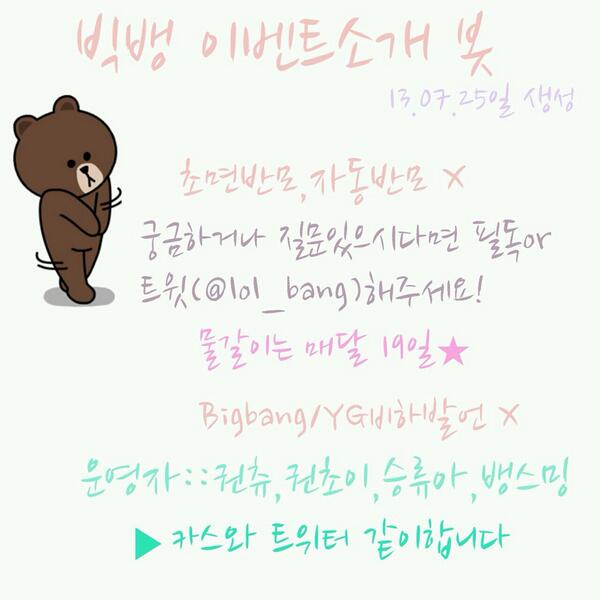 빅뱅 이벤트소개 봇
13.07.25일 생성
초면반모,자동반모 X
궁금하거나 질문있으시다면 필독or
트윗(@lol_bang)해주세요!
물갈이는 매달 19일★
Bigbang/YG비하발언 X
운영자::권츄,권초이,승류아,뱅스밍
▶ 카스와 트위터 같이합니다